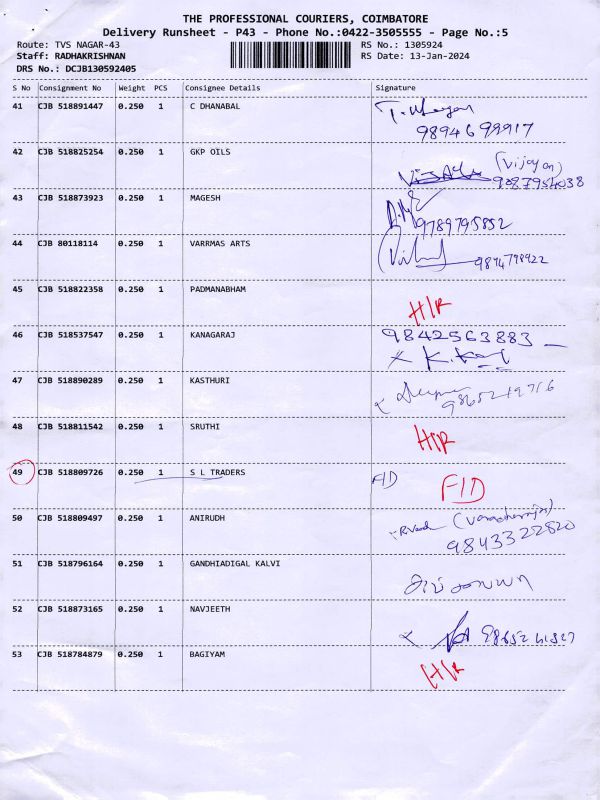 THE PROFESSIONAL COURIERS, COIMBATORE
Delivery Runsheet - P43 - Phone No.:0422-3505555 - Page No.:5
Route: TVS NAGAR-43 RS No.: 1305924
Staff: RADHAKRISHNAN RS Date: 13-Jan-2024
DRS No.: DCJB130592405
S No Consignment No Weight PCS Consignee Details Signature
41 CJB 518891447 0.250 1 C DHANABAL
9894699917
42 CJB 518825254 0.250 1 GKP OILS
(Vijayan)
9087954038
43 CJB 518873923 0.250 1 MAGESH
9789795852
44 CJB 80118114 0.250 1 VARRMAS ARTS
9894798922
45 CJB 518822358 0.250 1 PADMANABHAM
H/R
46 CJB 518537547 0.250 1 KANAGARAJ 9842563883
47 CJB 518890289 0.250 1 KASTHURI
48 CJB 518811542 0.250 1 SRUTHI
H/R
49 CJB 518809726 0.250 1 S L TRADERS F/D F/D
50 CJB 518809497 0.250 1 ANIRUDH
9843322820
51 CJB 518796164 0.250 1 GANDHIADIGAL KALVI
52 CJB 518873165 0.250 1 NAVJEETH
53 CJB 518784879 0.250 1 BAGIYAM
H/R